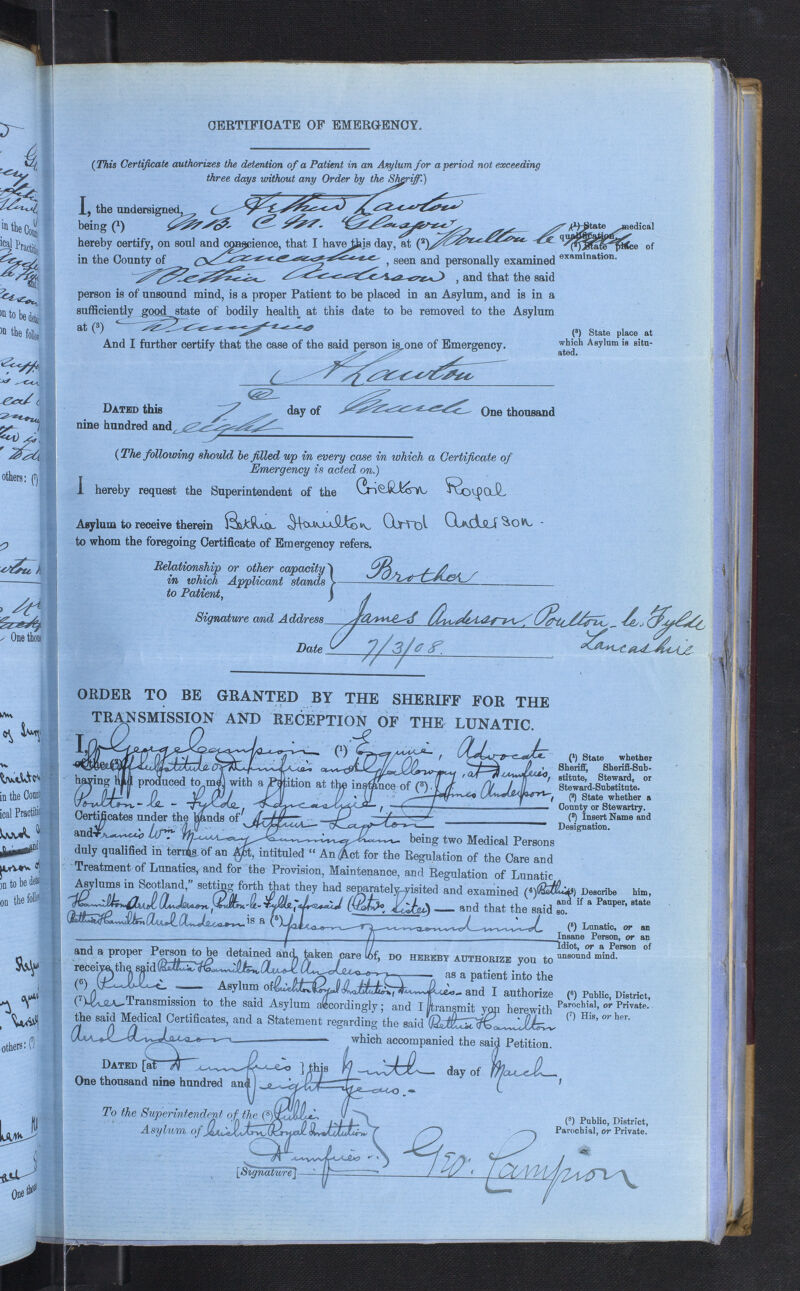 CERTIFICATE OF EMERGENCY.
(This Certificate authorizes the detention of a Patient in an Asylum for a period not exceeding
three days without any Order by the Sheriff.)
I, the undersigned, Arthur Lawton
being (¹) M.B. C.M. Glasgow
hereby certify, on soul and conscience, that I have this day, at (²) Poulton le Fylde
in the County of Lancashire, seen and personally examined
Bethia Anderson, and that the said
person is of unsound mind, is a proper Patient to be placed in an Asylum, and is in a
sufficiently good state of bodily health at this date to be removed to the Asylum
at (³) Dumfries
And I further certify that the case of the said person is one of Emergency.
(¹) State medical
qualification.
(²) State place of
examination.
(³) State place at
which Asylum is situ-
ated.
A Lawton
DATED this 7th day of March One thousand
nine hundred and eight
(The following should be filled up in every case in which a Certificate of
Emergency is acted on.)
I hereby request the Superintendent of the Crichton Royal
Asylum to receive therein Bethia Hamilton Arrol Anderson.
to whom the foregoing Certificate of Emergency refers.
Relationship or other capacity
in which Applicant stands
to Patient, } Brother
Signature and Address James Anderson, Poulton-le-Fylde
Lancashire
Date 7/3/08.
ORDER TO BE GRANTED BY THE SHERIFF FOR THE
TRANSMISSION AND RECEPTION OF THE LUNATIC.
I, George Campion (¹) Esquire, Advocate
Sheriff Substitute of Dumfries and Galloway, at Dumfries,
having had produced to me, with a Petition at the instance of (³) James Anderson,
Poulton-le-Fylde, Lancashire,
Certificates under the hands of Arthur Lawton
and Francis Wm. Murray Cunningham being two Medical Persons
duly qualified in terms of an Act, intituled "An Act for the Regulation of the Care and
Treatment of Lunatics, and for the Provision, Maintenance, and Regulation of Lunatic
Asylums in Scotland," setting forth that they had separately visited and examined (⁴) Bethia
Hamilton Arrol Anderson, Poulton-le-Fylde, aforesaid (Petrs. Sister) — and that the said
Bethia Hamilton Arrol Anderson is a (⁵) person of unsound mind
and a proper Person to be detained and taken care of, DO HEREBY AUTHORIZE you to
receive the said Bethia Hamilton Arrol Anderson as a patient into the
(⁶) Public — Asylum of Crichton Royal Institution, Dumfries — and I authorize
(⁷) her Transmission to the said Asylum accordingly; and I transmit you herewith
the said Medical Certificates, and a Statement regarding the said Bethia Hamilton
Arrol Anderson which accompanied the said Petition.
DATED [at Dumfries] this Ninth day of March,
One thousand nine hundred and eight years.-
To the Superintendent of the (⁸) Public
Asylum of Crichton Royal Institution
Dumfries.
[Signature] Geo. Campion
(¹) State whether
Sheriff, Sheriff-Sub-
stitute, Steward, or
Steward-Substitute.
(²) State whether a
County or Stewartry.
(³) Insert Name and
Designation.
(⁴) Describe him,
and if a Pauper, state
so.
(⁵) Lunatic, or an
Insane Person, or an
Idiot, or a Person of
unsound mind.
(⁶) Public, District,
Parochial, or Private.
(⁷) His, or her.
(⁸) Public, District,
Parochial, or Private.